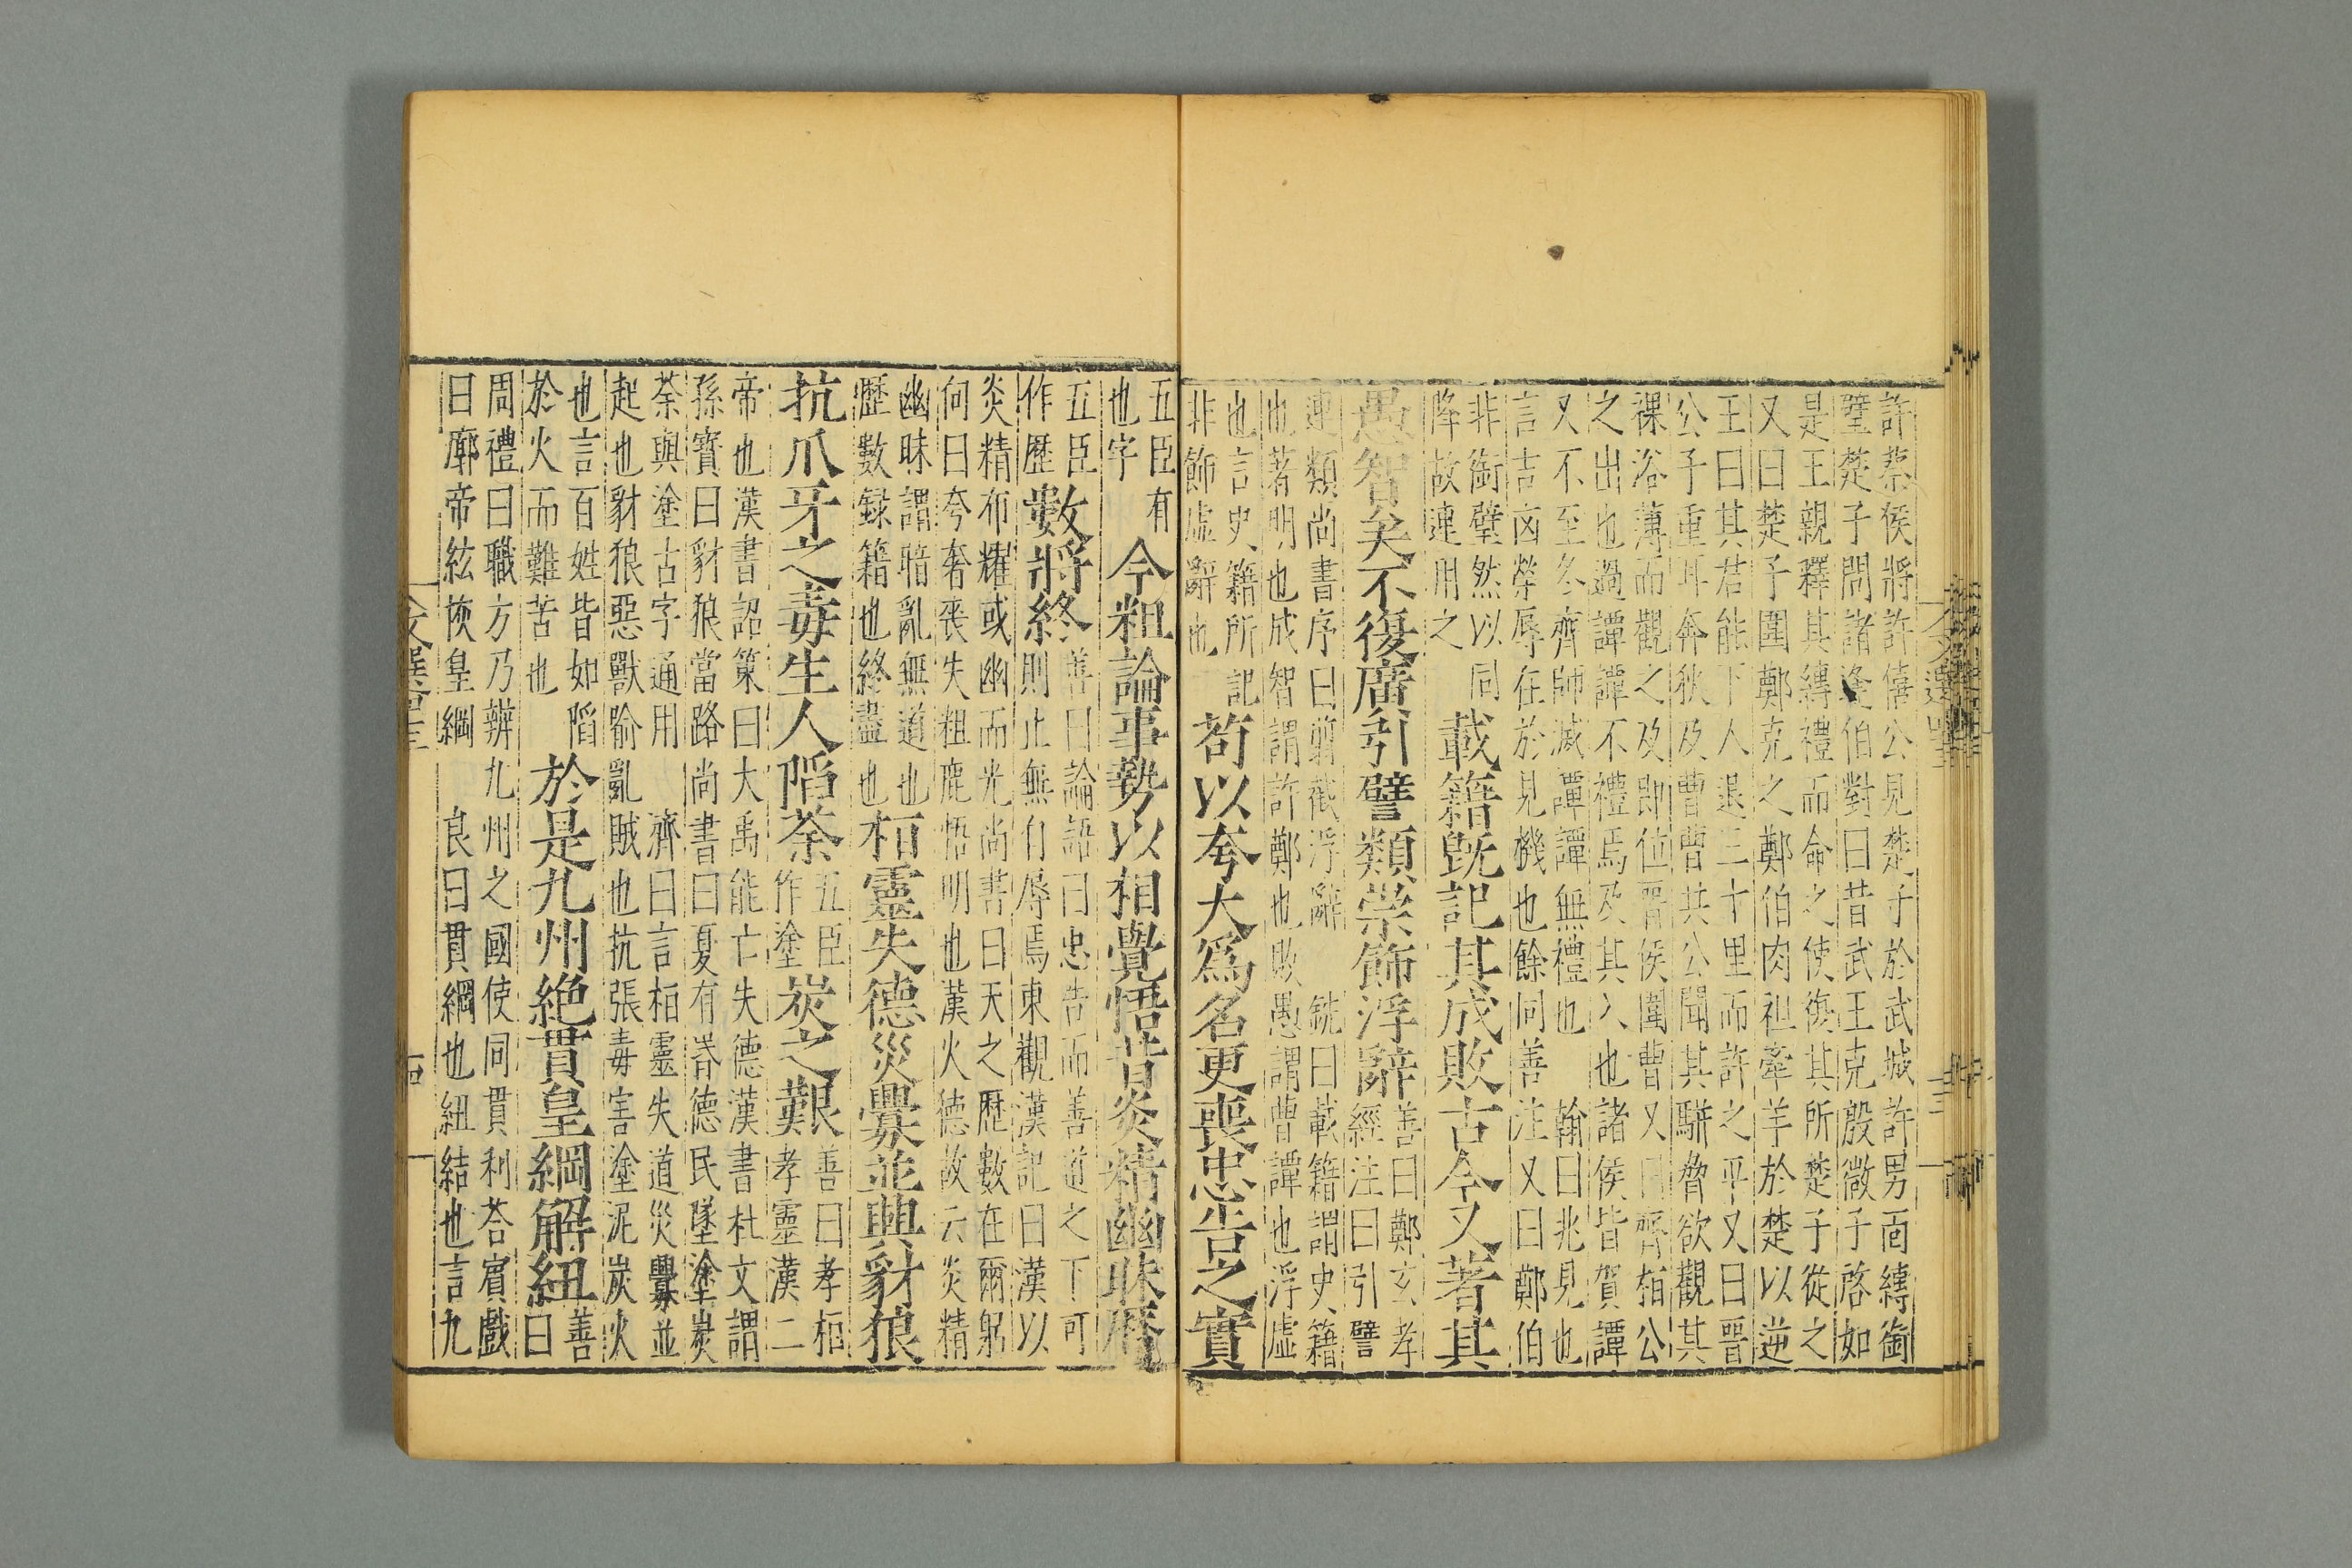 許蔡侯將許僖公見楚子於武城許男面縛銜
璧楚子問諸逢伯對曰昔武王克殷微子啓如
是王親釋其縛禮而命之使復其所楚子從之
又曰楚子圍鄭克之鄭伯肉袒牽羊於楚以逆
王曰其君能下人退三十里而許之平又曰晋
公子重耳奔狄及曹曹共公聞其駢脅欲觀其
裸浴薄而觀之及即位晋侯圍曹又曰齊栢公
之出也過譚譚不禮焉及其入也諸侯皆賀譚
又不至冬齊師滅譚譚無禮也 翰曰兆見也
言吉凶榮辱在於見機也餘同善注又曰鄭伯
非銜璧然以同
降故連用之
載籍旣記其成敗古今又著其
愚智矣不復廣引譬類崇飾浮辭
善曰鄭玄孝
經注曰引譬
連類尚書序曰翦截浮辭 銑曰載籍謂史籍
也著明也成智謂許鄭也敗愚謂曹譚也浮虛
也言史籍所記
非飾虛辭也
苟以夸大爲名更喪忠告之實
五臣有
也字
今粗論事勢以相覺悟昔炎精幽昧曆
五臣
作歷
數將終
善曰論語曰忠告而善道之下可
則止無自辱焉東觀漢記曰漢以
炎精布耀或幽而光尚書曰天之歷數在爾躬
何曰夸奢喪失粗鹿悟明也漢火德故云炎精
幽昧謂暗亂無道也
歷數録籍也終盡也
栢靈失德災釁並興豺狼
抗爪牙之毒生人陷荼
五臣
作塗
炭之艱
善曰孝桓
孝靈漢二
帝也漢書詔策曰大禹能亡失德漢書杜文謂
孫寳曰豺狼當路尚書曰夏有昬德民墜塗炭
荼與塗古字通用 濟曰言栢靈失道災釁並
起也豺狼惡獸喻亂賊也抗張毒害塗泥炭火
也言百姓皆如陷
於火而難苦也
於是九州絶貫皇綱解紐
善
曰
周禮曰職方乃辨九州之國使同貫利荅賓戲
曰廓帝紘恢皇綱 良曰貫綱也紐結也言九